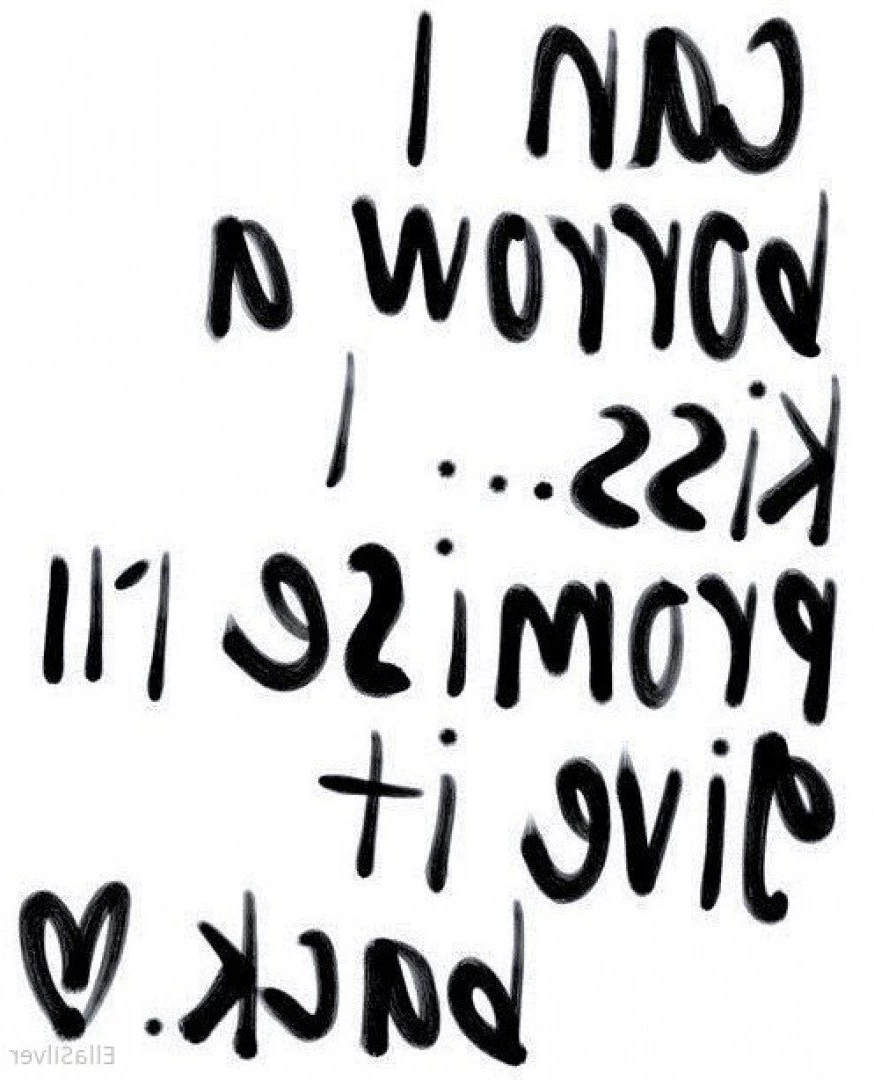 can I
borrow a
kiss... I
promise I'll
give it
back. ♡
EllaSilver